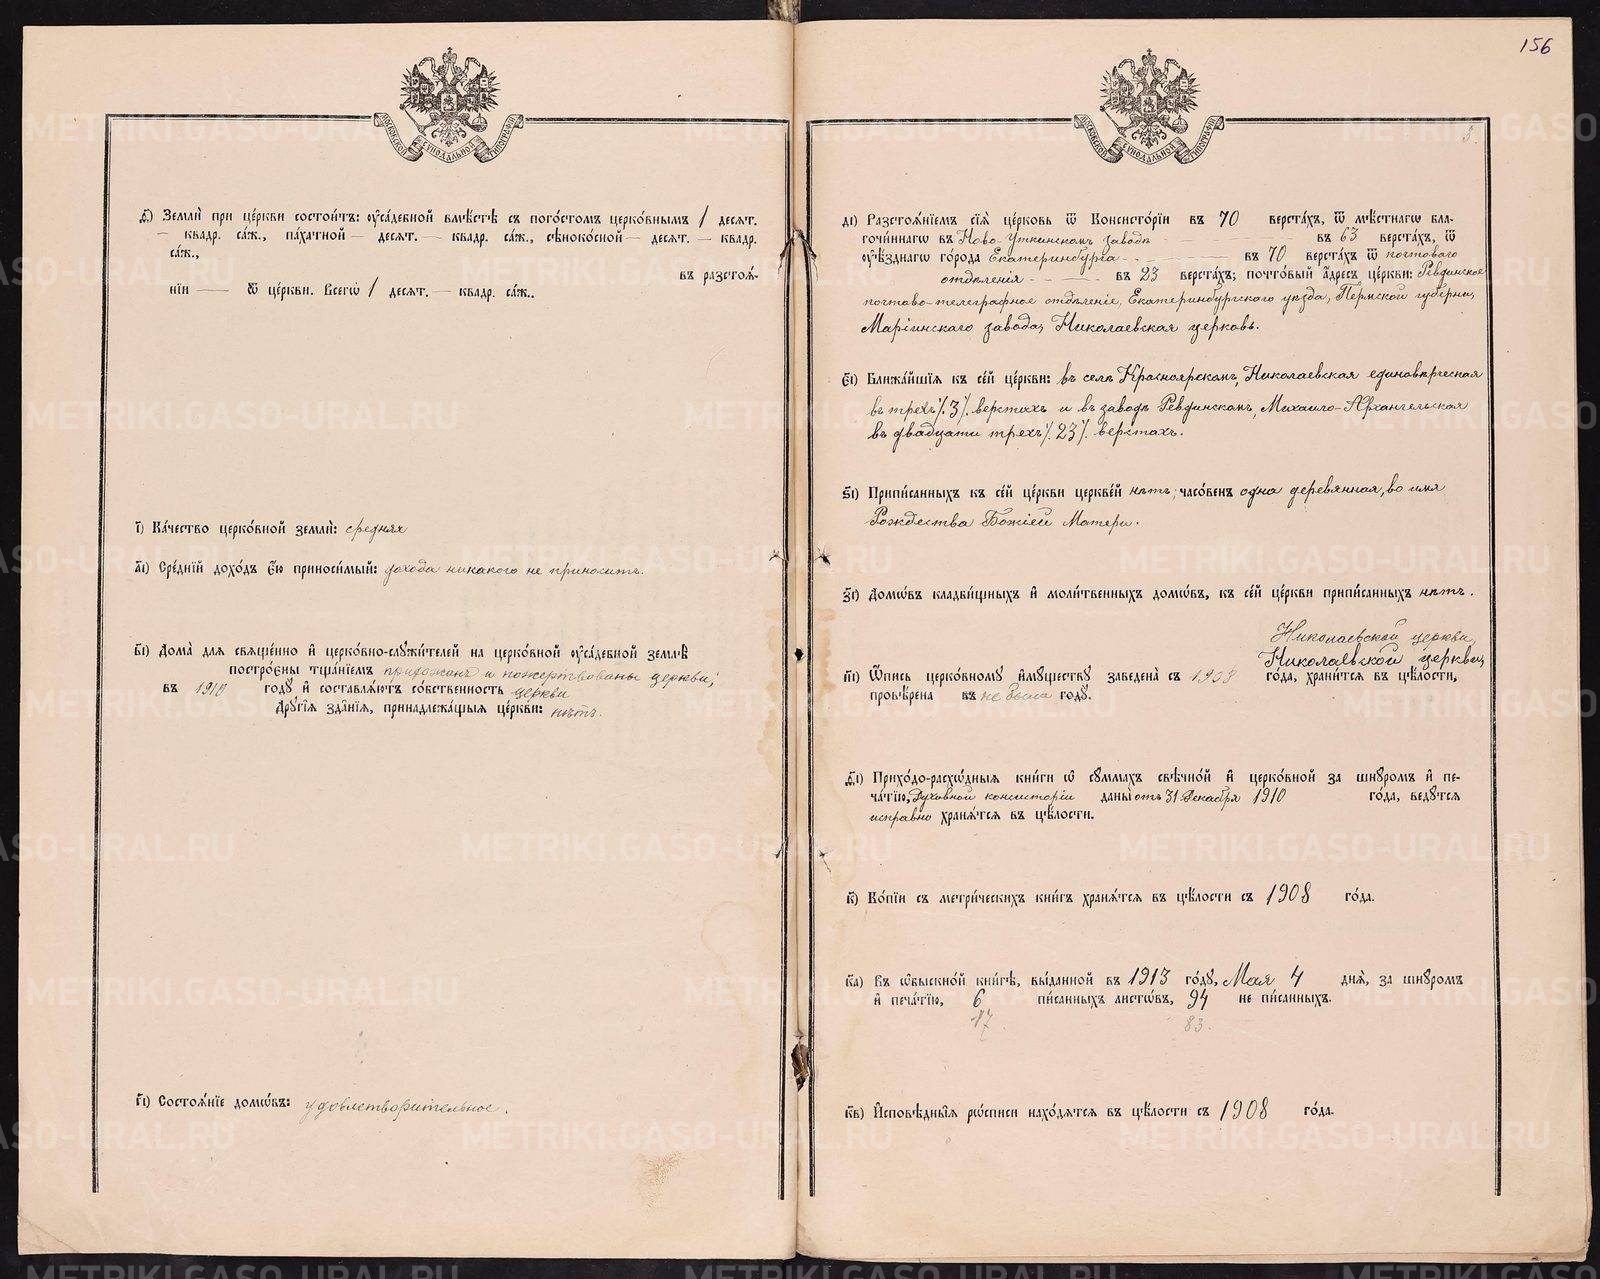 МОСКОВСКОЙ СѴНОДАЛЬНОЙ ТИПОГРАФІИ
ѳ҃) Землѝ при це́ркви состои́тъ: ѹса́дебной вмѣ́стѣ съ пого́стомъ церко́внымъ 1 деся́т.
— квадр. са́ж., па́хатной — деся́т. — квадр. са́ж., сѣноко́сной — деся́т. — квадр.
са́ж.,
въ разстоя́-
нїи — ѿ це́ркви. Всегѡ̀ 1 деся́т. — квадр. са́ж..
і҃) Ка́чество церко́вной землѝ: средняя
а҃і) Сре́днїй дохо́дъ е́ю приноси́мый: дохода никакого не приноситъ.
в҃і) Дома̀ для свяще́нно и҆ церко́вно-служи́телей на церко́вной ѹса́дебной землѣ̀
постро́ены тща́нїемъ прихожанъ и пожертвованы церкви;
въ 1910 году̀ и҆ составля́ютъ со́бственность церкви
Другі́я зда̑нїя, принадлежа́щыя це́ркви: нѣтъ.
г҃і) Состоя́нїе домѡ́въ: удовлетворительное.
156
3.
МОСКОВСКОЙ СѴНОДАЛЬНОЙ ТИПОГРАФІИ
д҃і) Разстоя́нїемъ сїя̀ це́рковь ѿ Консисто́рїи въ 70 верста́хъ, ѿ мѣ́стнагѡ бла-
гочи́ннагѡ въ Ново-Уткинскомъ заводѣ въ 63 верста́хъ, ѿ
ѹѣ́зднагѡ го́рода Екатеринбурга въ 70 верста́хъ ѿ почтоваго
отдѣленія въ 23 верста́хъ; почто́вый а́дресъ це́ркви: Ревдинское
почтово-телеграфное отдѣленіе, Екатеринбургскаго уѣзда, Пермской губерніи,
Маріинскаго завода, Николаевская церковь.
е҃і) Ближа́йшїя къ се́й це́ркви: въ селѣ Красноярскомъ, Николаевская единовѣрческая
въ трехъ /. 3 /. верстахъ и въ заводѣ Ревдинскомъ, Михаило-Архангельская
въ двадцати трехъ /. 23 /. верстахъ.
ѕ҃і) Припи́санныхъ къ се́й це́ркви церкве́й нѣтъ; часо́венъ одна деревянная, во имя
Рождества Божіей Матери.
з҃і) Домѡ́въ кладби́щныхъ и҆ моли́твенныхъ домѡ́въ, къ се́й це́ркви припи́санныхъ нѣтъ.
Николаевской церкви,
Николаевской церкви,
и҃і) Ѻпись церко́вному и҆му́ществу заведена̀ съ 1908 го́да, храни́тся въ цѣ́лости,
провѣ́рена въ не была году̀.
ѳ҃і) Прихо́до-расхѡ́дныя кни́ги ѡ су́ммахъ свѣчно́й и҆ церко́вной за шнуро́мъ и҆ пе-
ча́тїю, Духовной консисторіи даны̀ отъ 31 Декабря 1910 го́да, веду́тся
исправно храня́тся въ цѣ́лости.
к҃) Ко́пїи съ метри́ческихъ кни́гъ храня́тся въ цѣ́лости съ 1908 го́да.
к҃а) Въ ѡ́быскно́й кни́гѣ, вы́данной въ 1913 го́ду, Мая 4 дня̀, за шнуро́мъ
и҆ печа́тїю, 6 пи́санныхъ листѡ́въ, 94 не пи́санныхъ.
17. 83.
к҃в) И҆сповѣ́дныя рѡ́списи нахо́дятся въ цѣ́лости съ 1908 го́да.
METRIKI.GASO-URAL.RU